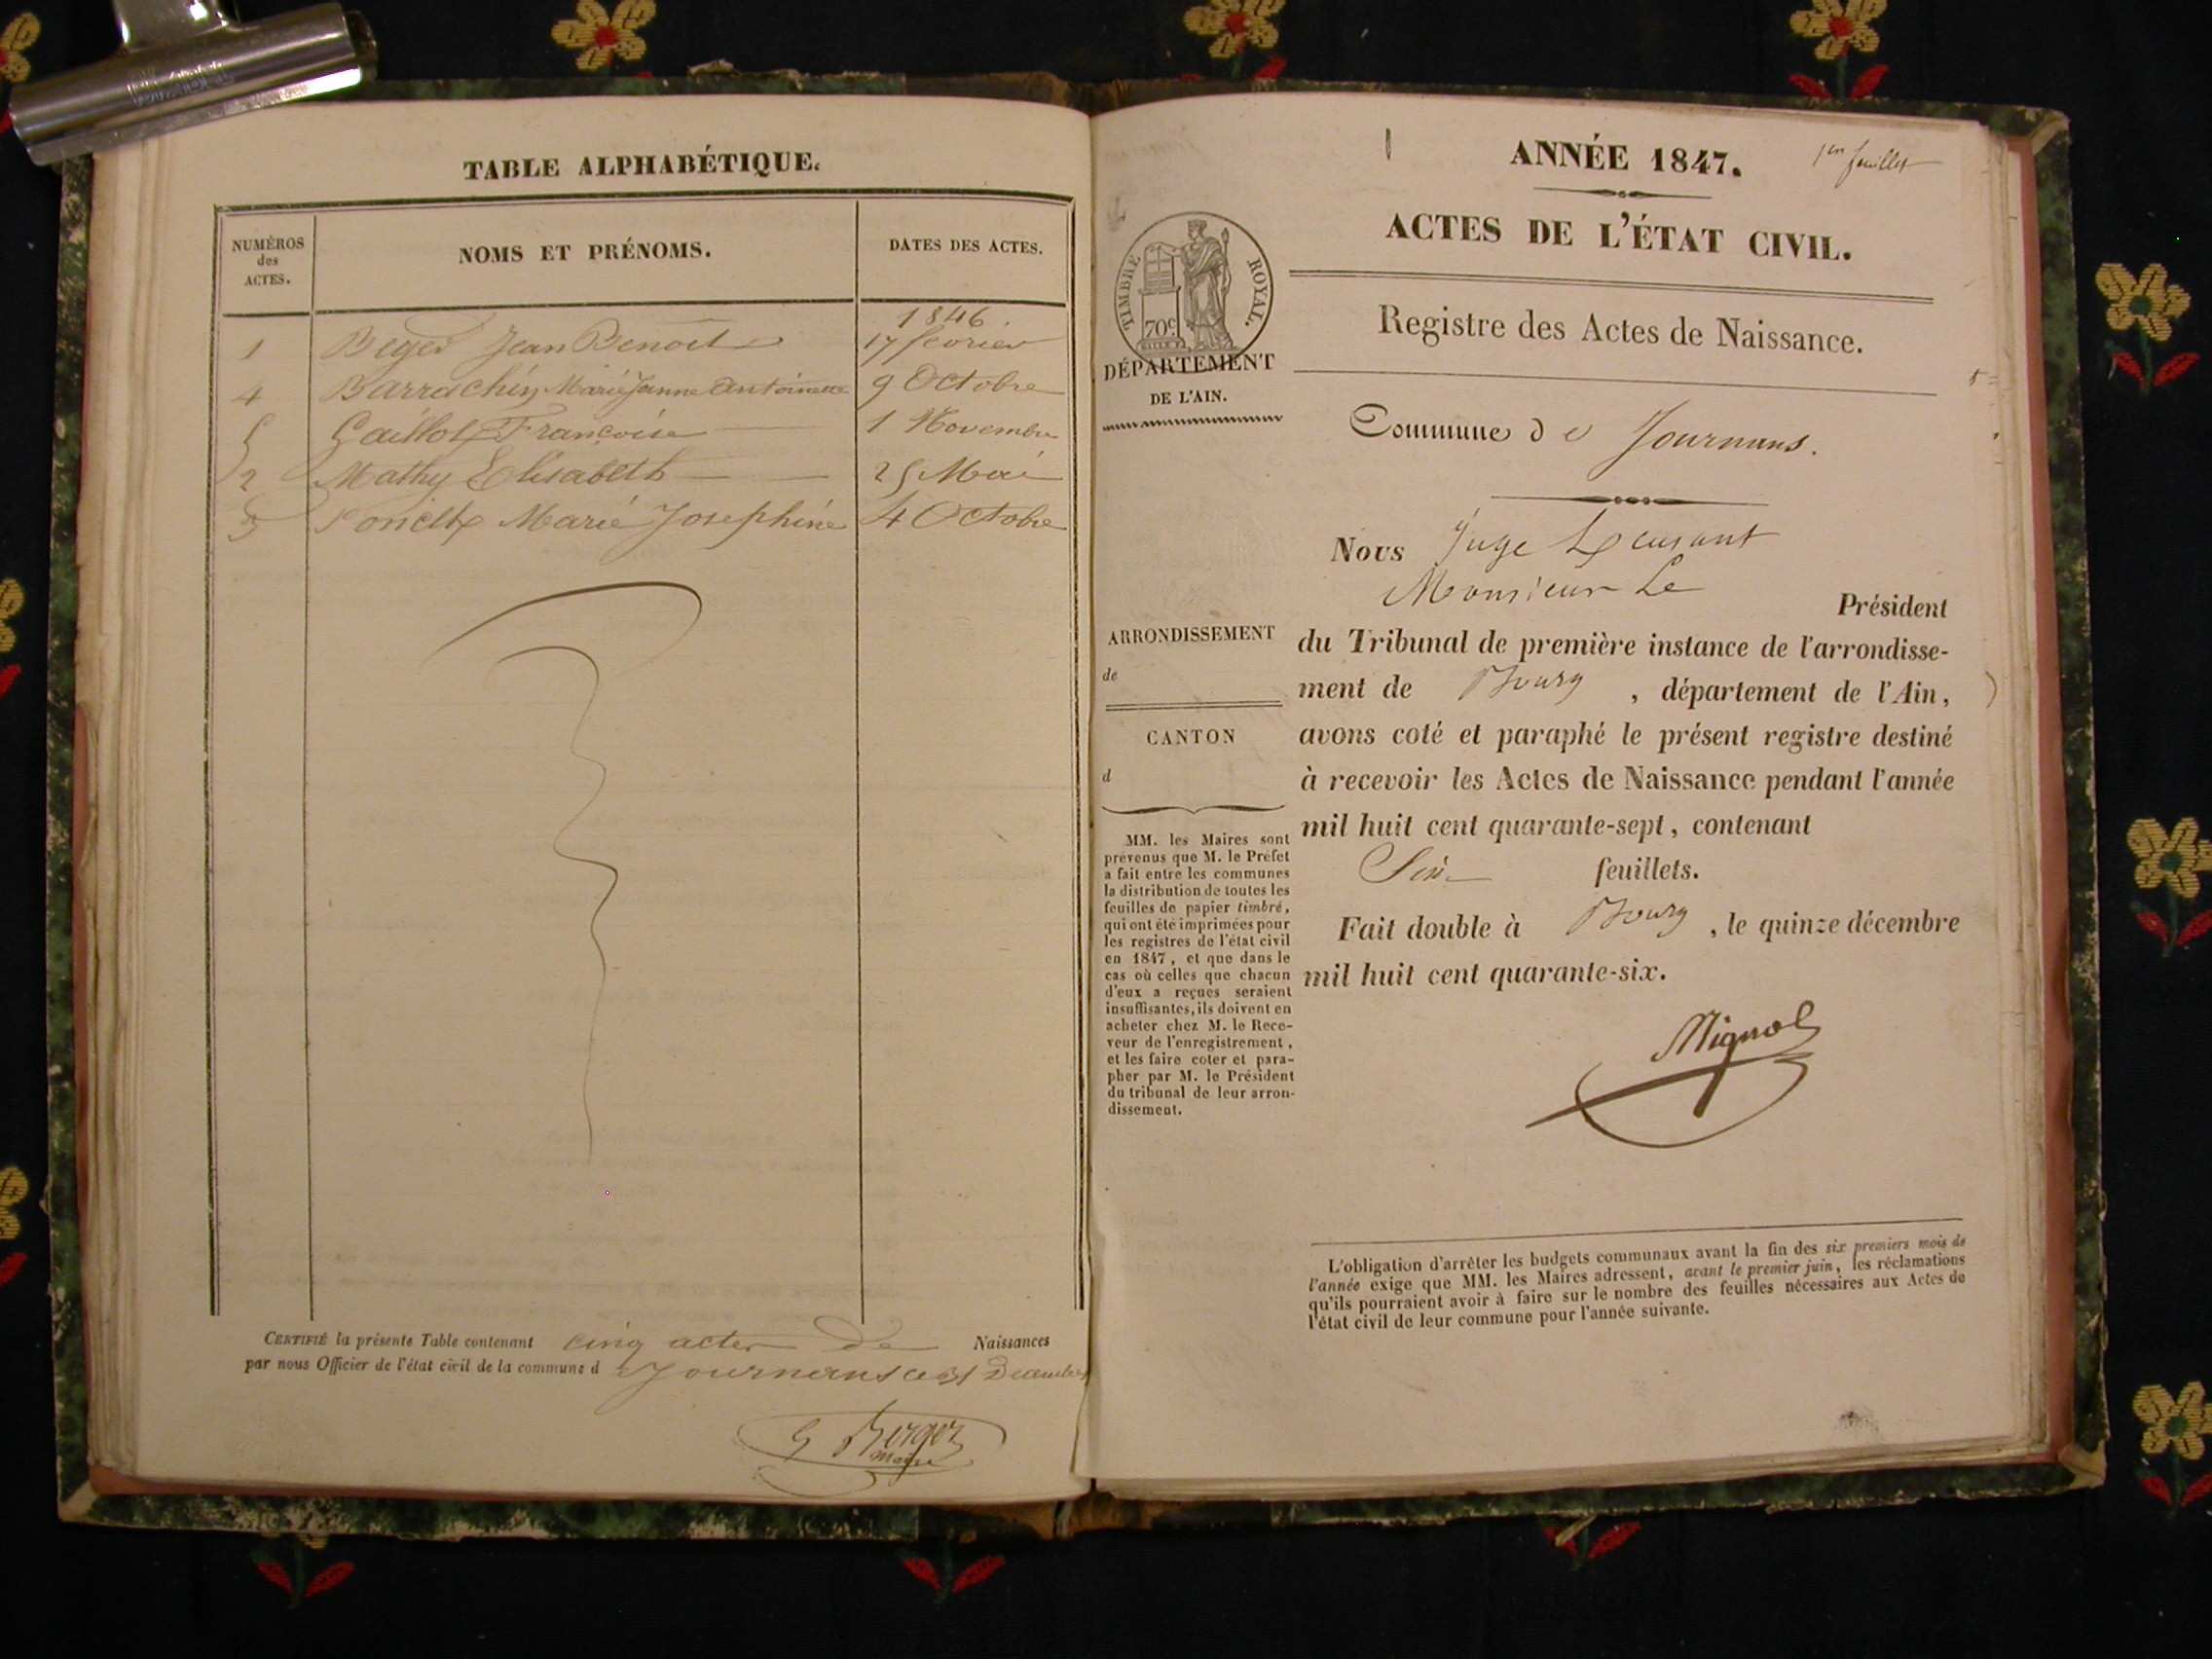 TABLE ALPHABÉTIQUE.
NUMÉROS des ACTES.
NOMS ET PRÉNOMS.
DATES DES ACTES.
1846.
1 Jean Benoit 17 février
4 Barrachin Marie Jeanne Antoinette 9 Octobre
5 Gaillot Françoise 1 Novembre
2 Mathy Elisabeth 25 Mai
3 Marie Josephine 4 Octobre
CERTIFIÉ la présente Table contenant cinq actes de Naissances
par nous Officier de l'état civil de la commune d e Journans ce 31 Decembre
G Berger
maire
1er feuillet
ANNÉE 1847.
ACTES DE L'ÉTAT CIVIL.
Registre des Actes de Naissance.
TIMBRE ROYAL.
70c
DÉPARTEMENT
DE L'AIN.
Commune d e Journans.
Nous Juge
Monsieur Le
Président
du Tribunal de première instance de l'arrondisse-
ment de Bourg , département de l'Ain,
avons coté et paraphé le présent registre destiné
à recevoir les Actes de Naissance pendant l'année
mil huit cent quarante-sept, contenant
Six feuillets.
Fait double à Bourg , le quinze décembre
mil huit cent quarante-six.
Mignot
ARRONDISSEMENT
de
CANTON
d
MM. les Maires sont
prévenus que M. le Préfet
a fait entre les communes
la distribution de toutes les
feuilles de papier timbré,
qui ont été imprimées pour
les registres de l'état civil
en 1847, et que dans le
cas où celles que chacun
d'eux a reçues seraient
insuffisantes, ils doivent en
acheter chez M. le Rece-
veur de l'enregistrement,
et les faire coter et para-
pher par M. le Président
du tribunal de leur arron-
dissement.
L'obligation d'arrêter les budgets communaux avant la fin des six premiers mois de
l'année exige que MM. les Maires adressent, avant le premier juin, les réclamations
qu'ils pourraient avoir à faire sur le nombre des feuilles nécessaires aux Actes de
l'état civil de leur commune pour l'année suivante.